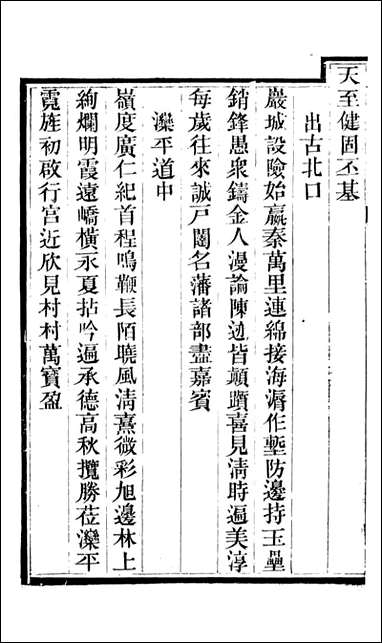 天至健固丕基
出古北口
嚴城設險始嬴秦萬里連綿接海漘作塹防邊持玉壘
銷鋒愚衆鑄金人漫論陳迹皆顛躓喜見清時遍美淳
每歲往來誠戶闥名藩諸部盡嘉賓
灤平道中
嶺度廣仁紀首程鳴鞭長陌曉風清熹微彩旭邊林上
絢爛明霞遠嶠橫永夏拈吟遍承德高秋攬勝莅灤平
霓旌初啟行宮近欣見村村萬寶盈